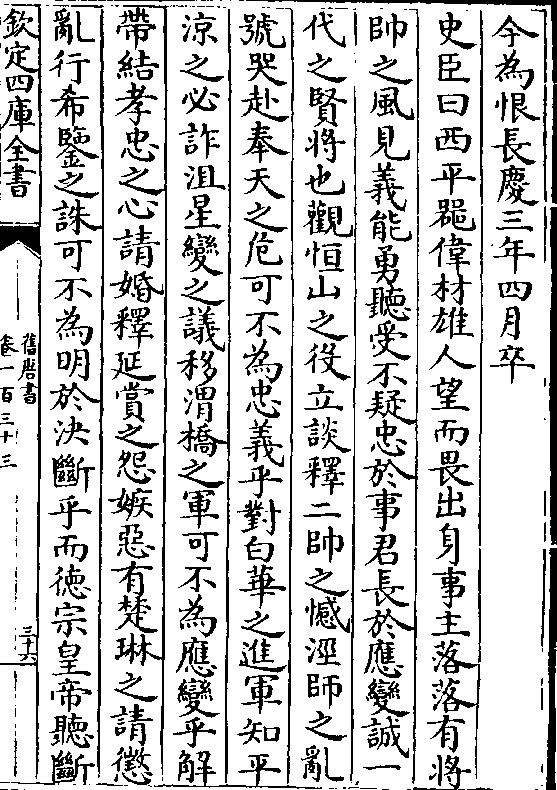 今為恨長慶三年四月卒
史臣曰西平器偉材雄人望而畏出身事主落落有將
帥之風見義能勇聽受不疑忠於事君長於應變誠一
代之賢將也觀恒山之役立談釋二帥之憾涇師之亂
號哭赴奉天之危可不為忠義乎對白華之進軍知平
涼之必詐沮星變之議移渭橋之軍可不為應變乎解
帶結孝忠之心請婚釋延賞之怨嫉惡有楚琳之請懲
亂行希鑒之誅可不為明於決斷乎而徳宗皇帝聽斷
欽定四庫全書
舊唐書
卷一百三十三
三十六